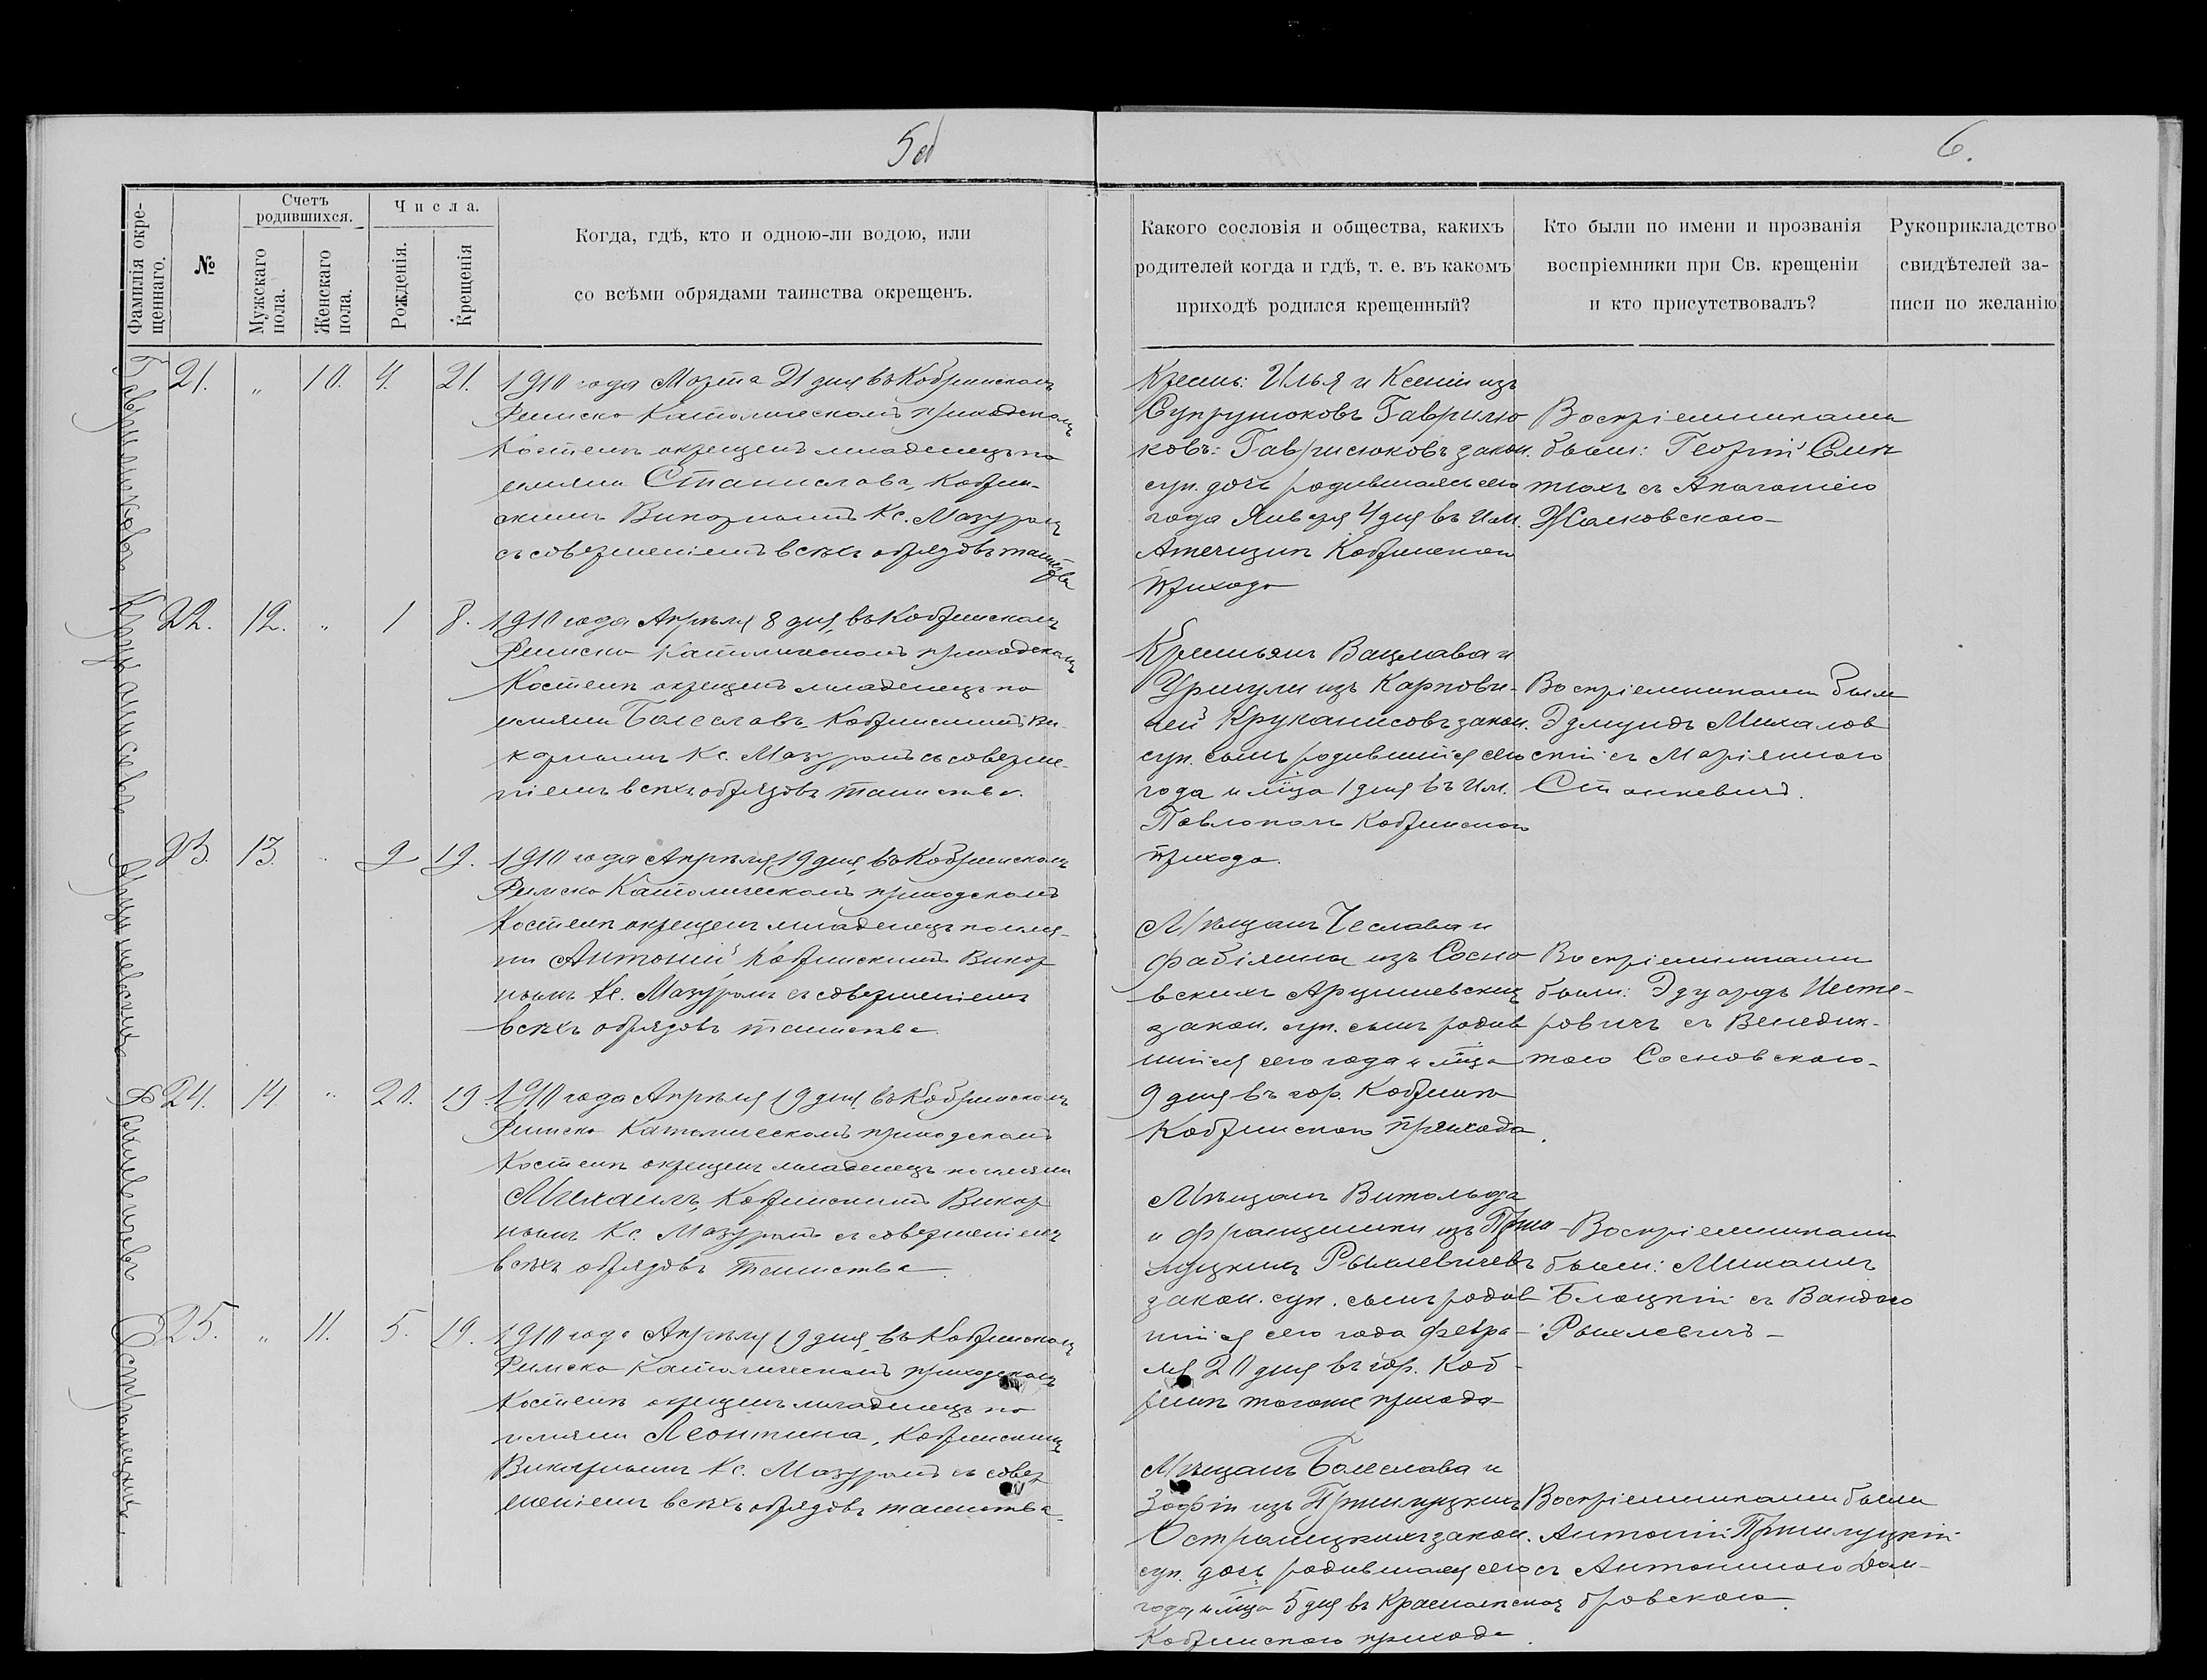 5об
6.
Фамилія окре-
щеннаго.
№
Счетъ
родившихся.
Мужскаго
пола.
Женскаго
пола.
Числа.
Рожденія.
Крещенія
Когда, гдѣ, кто и одною-ли водою, или
со всѣми обрядами таинства окрещенъ.
Какого сословія и общества, какихъ
родителей когда и гдѣ, т. е. въ какомъ
приходѣ родился крещенный?
Кто были по имени и прозванія
воспріемники при Св. крещеніи
и кто присутствовалъ?
Рукоприкладство
свидѣтелей за-
писи по желанію
21. " 10. 4. 21.
1910 года Марта 21 дня въ Кобринскомъ
Римско Католическомъ приходскомъ
Костелѣ окрещенъ младенецъ по
имени Станислава, Кобрин-
скимъ Викарнымъ Кс. Мазуромъ
съ совершеніемъ всѣхъ обрядовъ таинства
Крестьянъ: Илья и Ксеніи изъ
Супрунюковъ Гаврилю
ковъ: Гаврилюковъ закон.
суп. дочь родившаяся сего
года Января 4 дня въ им.
Кобринскаго
прихода
Воспріемниками
были: Георгій
тюхъ съ Аполоніею
Жалковскою-
22. 12. " 1 8.
1910 года Апрѣля 8 дня, въ Кобринскомъ
Римско Католическомъ приходскомъ
Костелѣ окрещенъ младенецъ по
имени Болеславъ, Кобринскимъ Ви-
карнымъ Кс. Мазуромъ съ соверше-
ніемъ всѣхъ обрядовъ таинства.
Крестьянъ Вацлава и
Уршули изъ Карпови-
чей Круканисовъ закон.
суп. сынъ родившійся сего
года и м-ца 1 дня въ им.
Павлополь Кобринскаго
прихода.
Воспріемниками были
Эдмундъ Михалов
скій съ Маріянною
Станкевичъ.
23. 13. " 9 19.
1910 года Апрѣля 19 дня, въ Кобринскомъ
Римско Католическомъ приходскомъ
Костелѣ окрещенъ младенецъ по име-
ни Антоній, Кобринскимъ Викар
нымъ Кс. Мазуромъ съ совершеніемъ
всѣхъ обрядовъ таинства
Мѣщанъ Чеслава и
Фабіянны изъ Сосно
вскихъ Арцишевскихъ
закон. суп. сынъ родив
шійся сего года и м-ца
9 дня въ гор. Кобринѣ
Кобринскаго прихода.
Воспріемниками
были: Эдуардъ Несте-
ровичъ съ Бенедик-
тою Сосновскою-
24. 14. " 20. 19.
1910 года Апрѣля 19 дня, въ Кобринскомъ
Римско Католическомъ приходскомъ
Костелѣ окрещенъ младенецъ по имени
Михаилъ, Кобринскимъ Викар
нымъ Кс. Мазуромъ съ совершеніемъ
всѣхъ обрядовъ таинства.
Мѣщанъ Витольда
и Францишки изъ Приш
луцкихъ Рыхлевичевъ
закон. суп. сынъ родив
шійся сего года Февра-
ля 20 дня въ гор. Коб-
ринѣ тогоже прихода
Воспріемниками
были: Михаилъ
Блоцкій съ Вандою
Рыхлевичъ-
25. " 11. 5. 19.
1910 года Апрѣля 19 дня, въ Кобринскомъ
Римско Католическомъ приходскомъ
Костелѣ окрещенъ младенецъ по
имени Леонтина, Кобринскимъ
Викарнымъ Кс. Мазуромъ съ совер
шеніемъ всѣхъ обрядовъ таинства.
Мѣщанъ Болеслава и
Зофіи изъ Пришлуцкихъ
Остромецкихъ закон.
суп. дочь родившаяся сего
года и м-ца 5 дня въ
Кобринскаго прихода.
Воспріемниками были
Антоній Пришлуцкій
съ Антониною Дом-
бровскою.
Гаврилюковъ
Круканисовъ
Арцишевскихъ
Рыхлевичевъ
Остромецкихъ